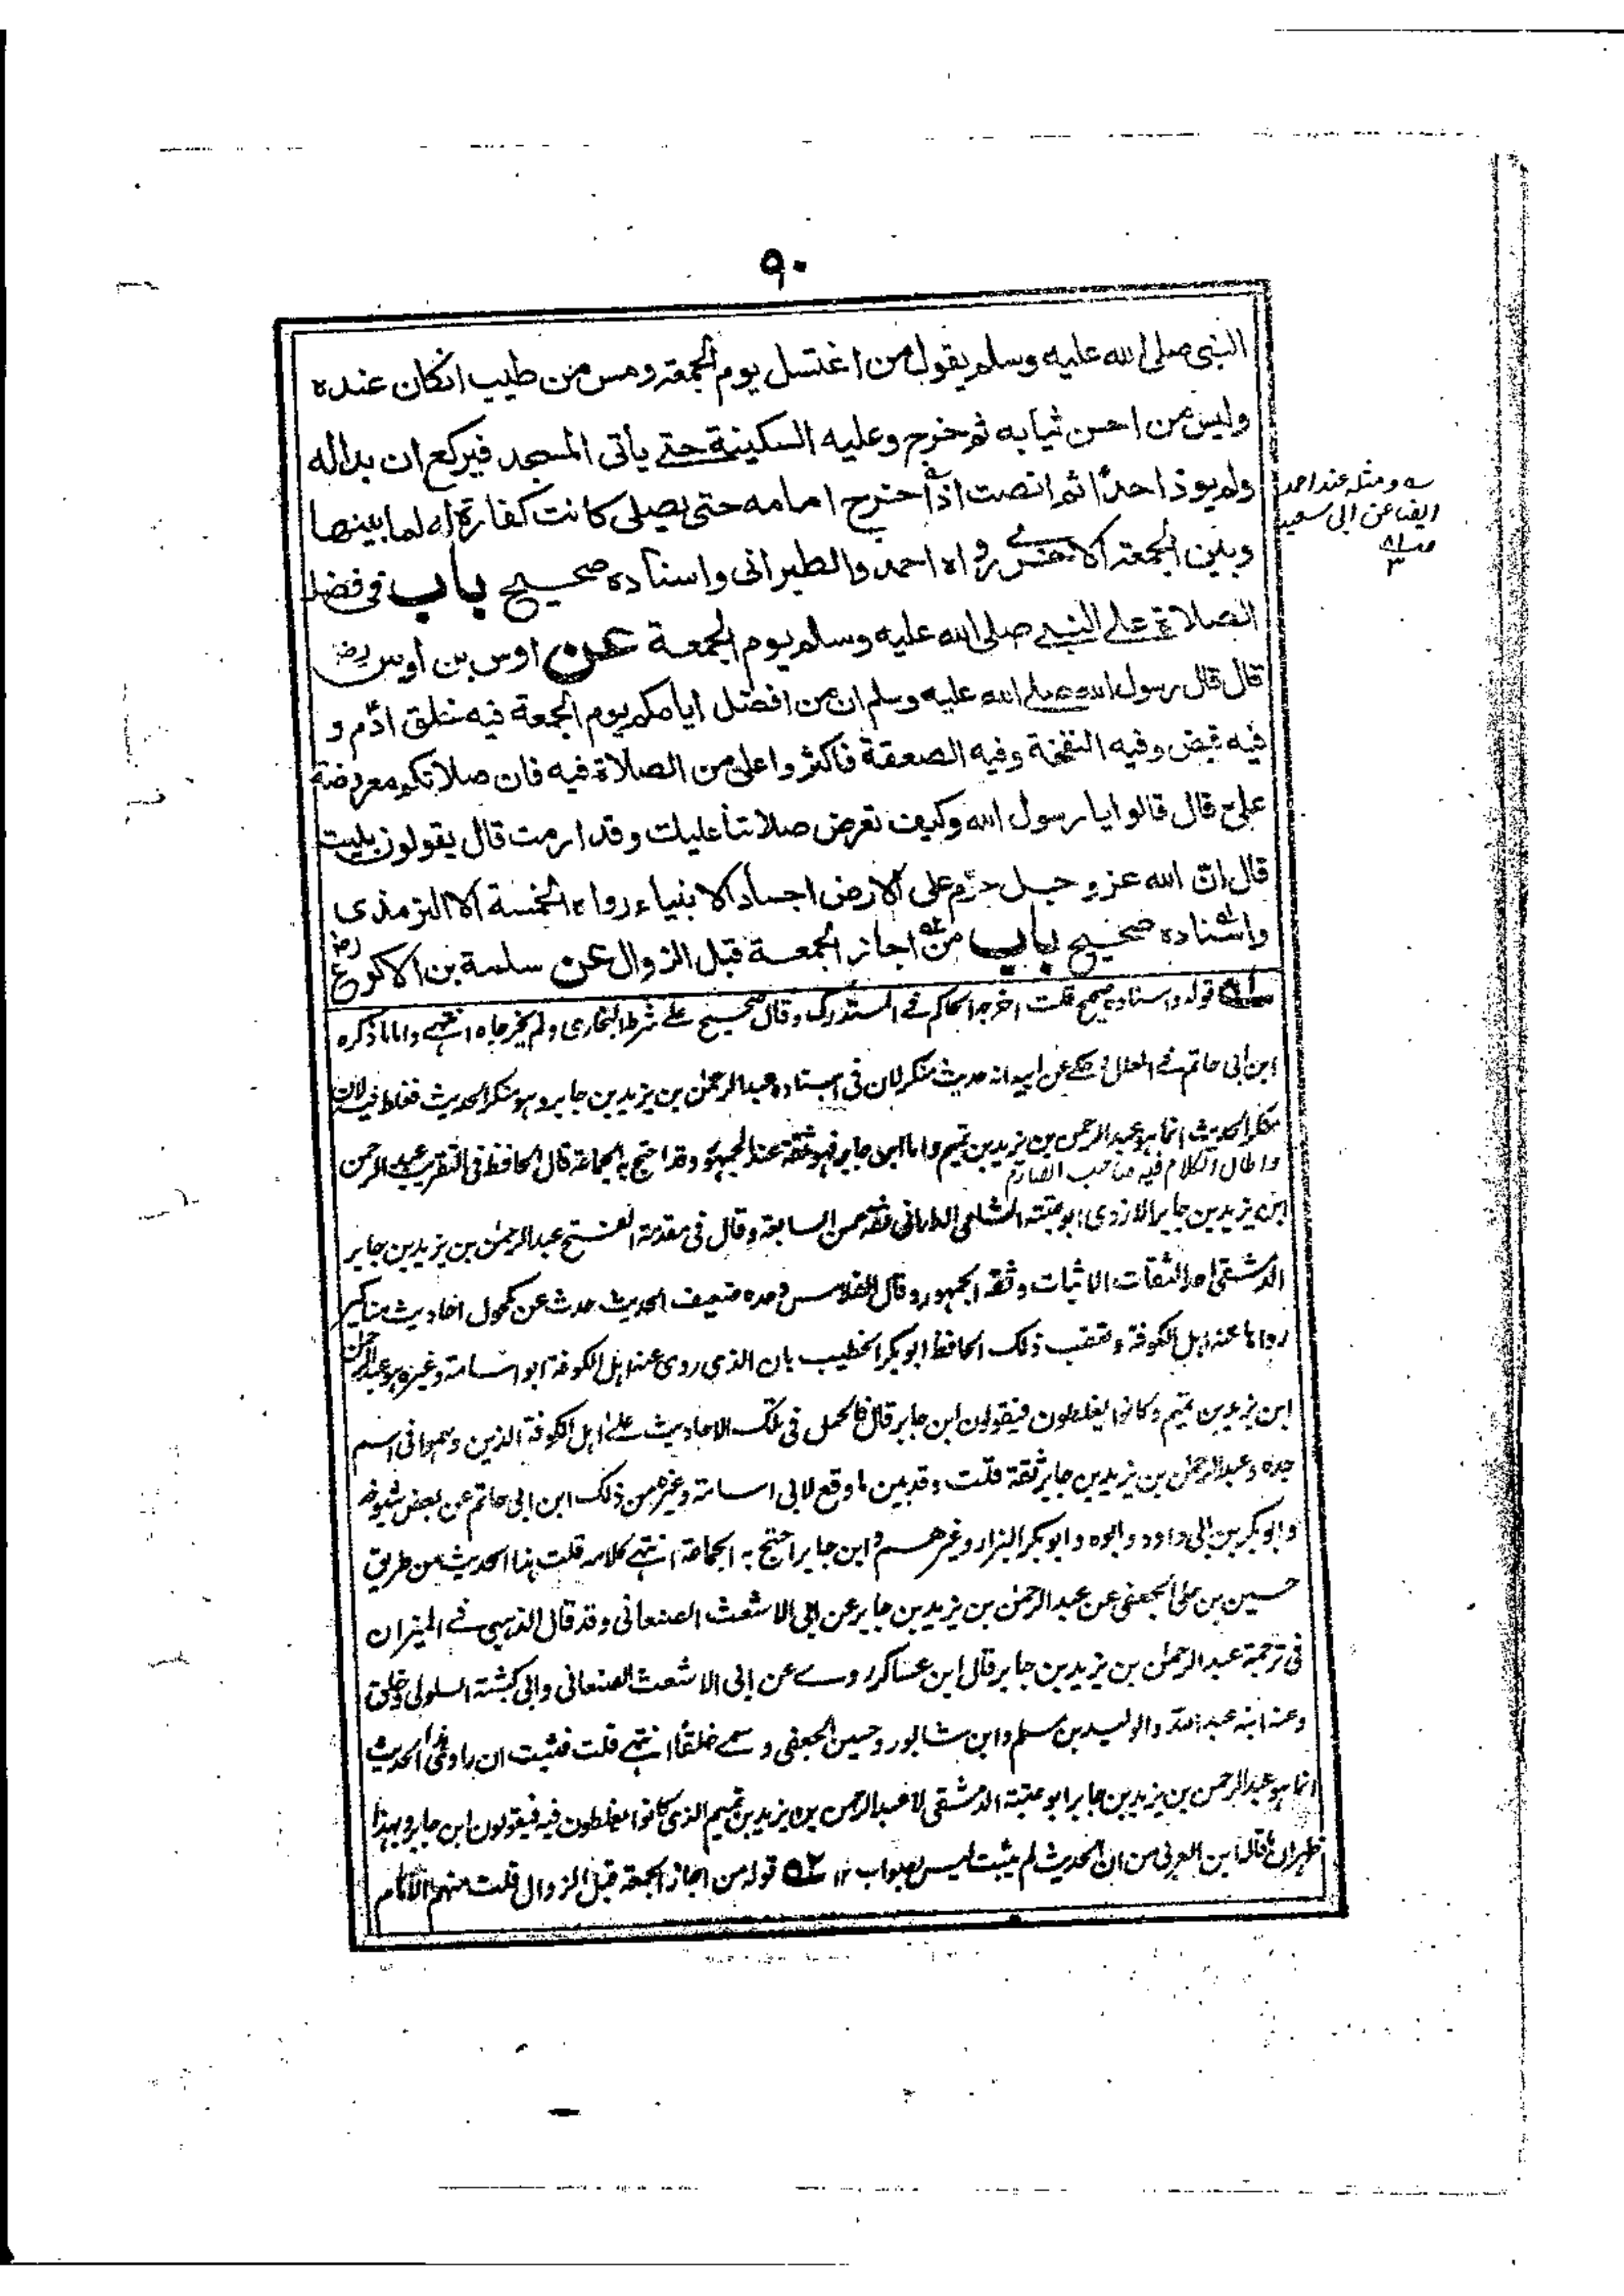 ٩٠
النبي صلى الله عليه وسلم يقول من اغتسل يوم الجمعة ومس من طيب انكان عنده
ولبس من احسن ثيابه ثم خرج وعليه السكينة حتى يأتى المسجد فيركع ان بدا له
ولم يوذ احدًا ثم انصت اذا خرج امامه حتى يصلى كانت كفارة له لما بينها
وبين الجمعة الاخرى رواه احمد والطبرانى واسناده صحيح باب فى فضل
الصلاة على النبى صلى الله عليه وسلم يوم الجمعة عن اوس بن اوس رض
قال قال رسول الله صلى الله عليه وسلم ان من افضل ايامكم يوم الجمعة فيه خلق اٰدم و
فيه قبض وفيه النفخة وفيه الصعقة فاكثروا على من الصلاة فيه فان صلاتكم معروضة
على قال قالوا يا رسول الله وكيف تعرض صلاتنا عليك وقد ارمت قال يقولون بليت
قال ان الله عز وجل حرم على الارض اجساد الانبياء رواه الخمسة الا الترمذى
واسناده صحيح باب من اجاز الجمعة قبل الزوال عن سلمة بن الاكوع رض
ومثله عند احمد
ايضا عن ابى سعيد
٥١ قوله واسناده صحيح قلت اخرجه الحاكم فى المستدرك وقال صحيح على شرط البخارى ولم يخرجاه انتهى واما ما ذكره
ابن ابى حاتم فى العلل وحكى عن ابيه انه حديث منكر لان فى اسناده عبد الرحمٰن بن يزيد بن جابر وهو منكر الحديث فغلط فيه لان
منكر الحديث انما هو عبد الرحمن بن يزيد بن تميم واما ابن جابر فهو ثقة عند الجمهور وقد احتج به الجماعة قال الحافظ فى التقريب عبد الرحمن
واطال الكلام فيه صاحب الصارم
ابن يزيد بن جابر الازدى ابو عتبة الشامى الدارانى ثقة من السابعة وقال فى مقدمة الفتح عبد الرحمٰن بن يزيد بن جابر
الدمشقى احد الثقات الاثبات وثقه الجمهور وقال الفلاس وحده ضعيف الحديث حدث عن مكحول احاديث مناكير
رواها عنه اهل الكوفة وتعقب ذلك الحافظ ابو بكر الخطيب بان الذى روى عنه اهل الكوفة ابو اسامة وغيره هو عبد الرحمٰن
ابن يزيد بن تميم وكانوا يغلطون فيقولون ابن جابر قال فالحمل فى تلك الاحاديث على اهل الكوفة الذين وهموا فى اسم
جده وعبد الرحمٰن بن يزيد بن جابر ثقة قلت وقد بين ما وقع لابى اسامة وغيره من ذلك ابن ابى حاتم عن بعض شيوخه
وابو بكر بن ابى داود وابوه وابو بكر البزار وغيرهم وابن جابر احتج به الجماعة انتهى كلامه قلت هذا الحديث من طريق
حسين بن على الجعفى عن عبد الرحمٰن بن يزيد بن جابر عن ابى الاشعث الصنعانى وقد قال الذهبى فى الميزان
فى ترجمة عبد الرحمٰن بن يزيد بن جابر قال ابن عساكر روى عن ابى الاشعث الصنعانى وابى كبشة السلولى وخلق
وعنه ابنه عبد الله والوليد بن مسلم وابن شابور وحسين الجعفى وسمى خلقًا انتهى قلت فثبت ان راوى هذا الحديث
انما هو عبد الرحمن بن يزيد بن جابر ابو عتبة الدمشقى لا عبد الرحمن بن يزيد بن تميم الذى كانوا يغلطون فيه فيقولون ابن جابر وبهذا
ظهر ان ما قال ابن العربى من ان الحديث لم يثبت ليس بصواب ١٢ ٥٢ قوله من اجاز الجمعة قبل الزوال قلت منهم الامام